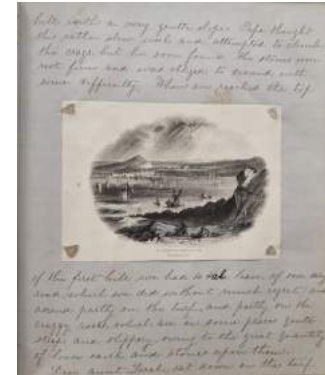 hill with a very gentle slope. Papa thought
this rather slow work and attempted to climb
the crags but he soon found the stones were
not firm and was obliged to descend with
some difficulty. When we reached the top
of the first hill we had to take leave of our
and which we did without much regret; and
ascend partly on the turf, and partly on the
craggy rocks, which are in some places quite
steep and slippery, owing to the great quantity
of loose earth and stones upon them.
Dear Aunt Sarah sat down on the turf